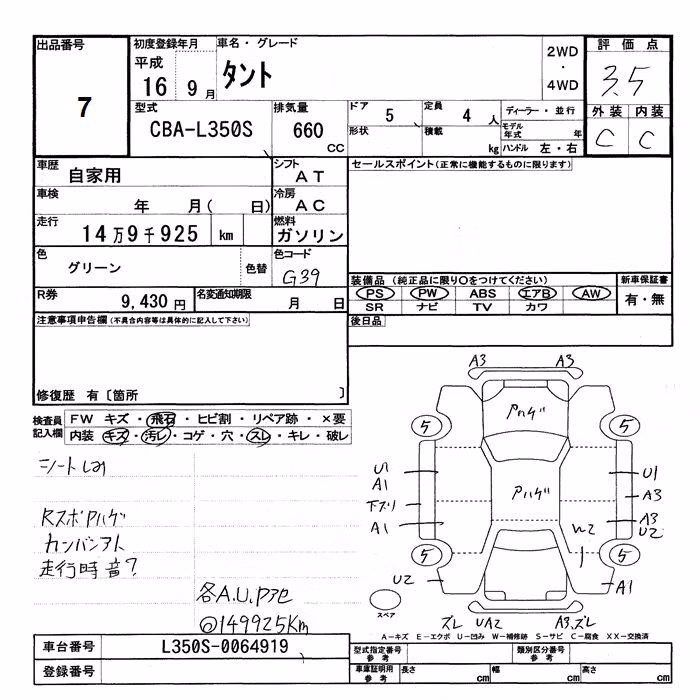 出品番号
7
初度登録年月
平成
16 年 9 月
車名・グレード
タント
2WD
・
4WD
評価点
3.5
外装 内装
C C
型式
CBA-L350S
排気量
660
CC
ドア
5
定員
4 人
形状
積載
kg
ディーラー・並行
モデル年式 年
ハンドル 左・右
車歴
自家用
シフト
AT
車検
年 月( 日)
冷房
AC
走行
14万9千925 km
燃料
ガソリン
色
グリーン
色替
色コード
G39
R券
9,430 円
名変通知期限
月 日
セールスポイント(正常に機能するものに限ります)
装備品(純正品に限り○をつけてください)
PS PW ABS エアB AW
SR ナビ TV カワ
新車保証書
有・無
後日品
注意事項申告欄(不具合内容等は具体的に記入して下さい)
修復歴 有〔箇所 〕
検査員記入欄
FW キズ・飛石・ヒビ割・リペア跡・×要
内装 キズ・汚レ・コゲ・穴・スレ・キレ・破レ
RスポPハゲ
カンバンアト
走行時音?
各A.U.Pアセ
@149925Km
A3 A3
Pハゲ
5 5
U1
A1
下ズリ
A1
Pハゲ
U1
A3
A3
U2
W2
5 5
U2
A1
スペア
ズレ UA2 A3.ズレ
A-キズ E-エクボ U-凹み W-補修跡 S-サビ C-腐食 XX-交換済
車台番号
L350S-0064919
登録番号
型式指定番号
参考
類別区分番号
参考
車庫証明用
参考
長さ cm 幅 cm 高さ cm